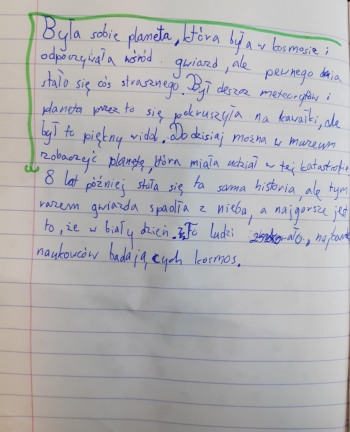 Była sobie planeta, która była w kosmosie i
odpoczywała wśród gwiazd, ale pewnego dnia
stało się coś strasznego. Był deszcz meteorytów i
planeta przez to się pokruszyła na kawałki, ale
był to piękny widok. Do dzisiaj można w muzeum
zobaczyć planetę, która miała udział w tej katastrofie
8 lat później stała się ta sama historia, ale tym
razem gwiazda spadła z nieba, a najgorsze jest
to, że w biały dzień. ludzi
naukowców badających kosmos.